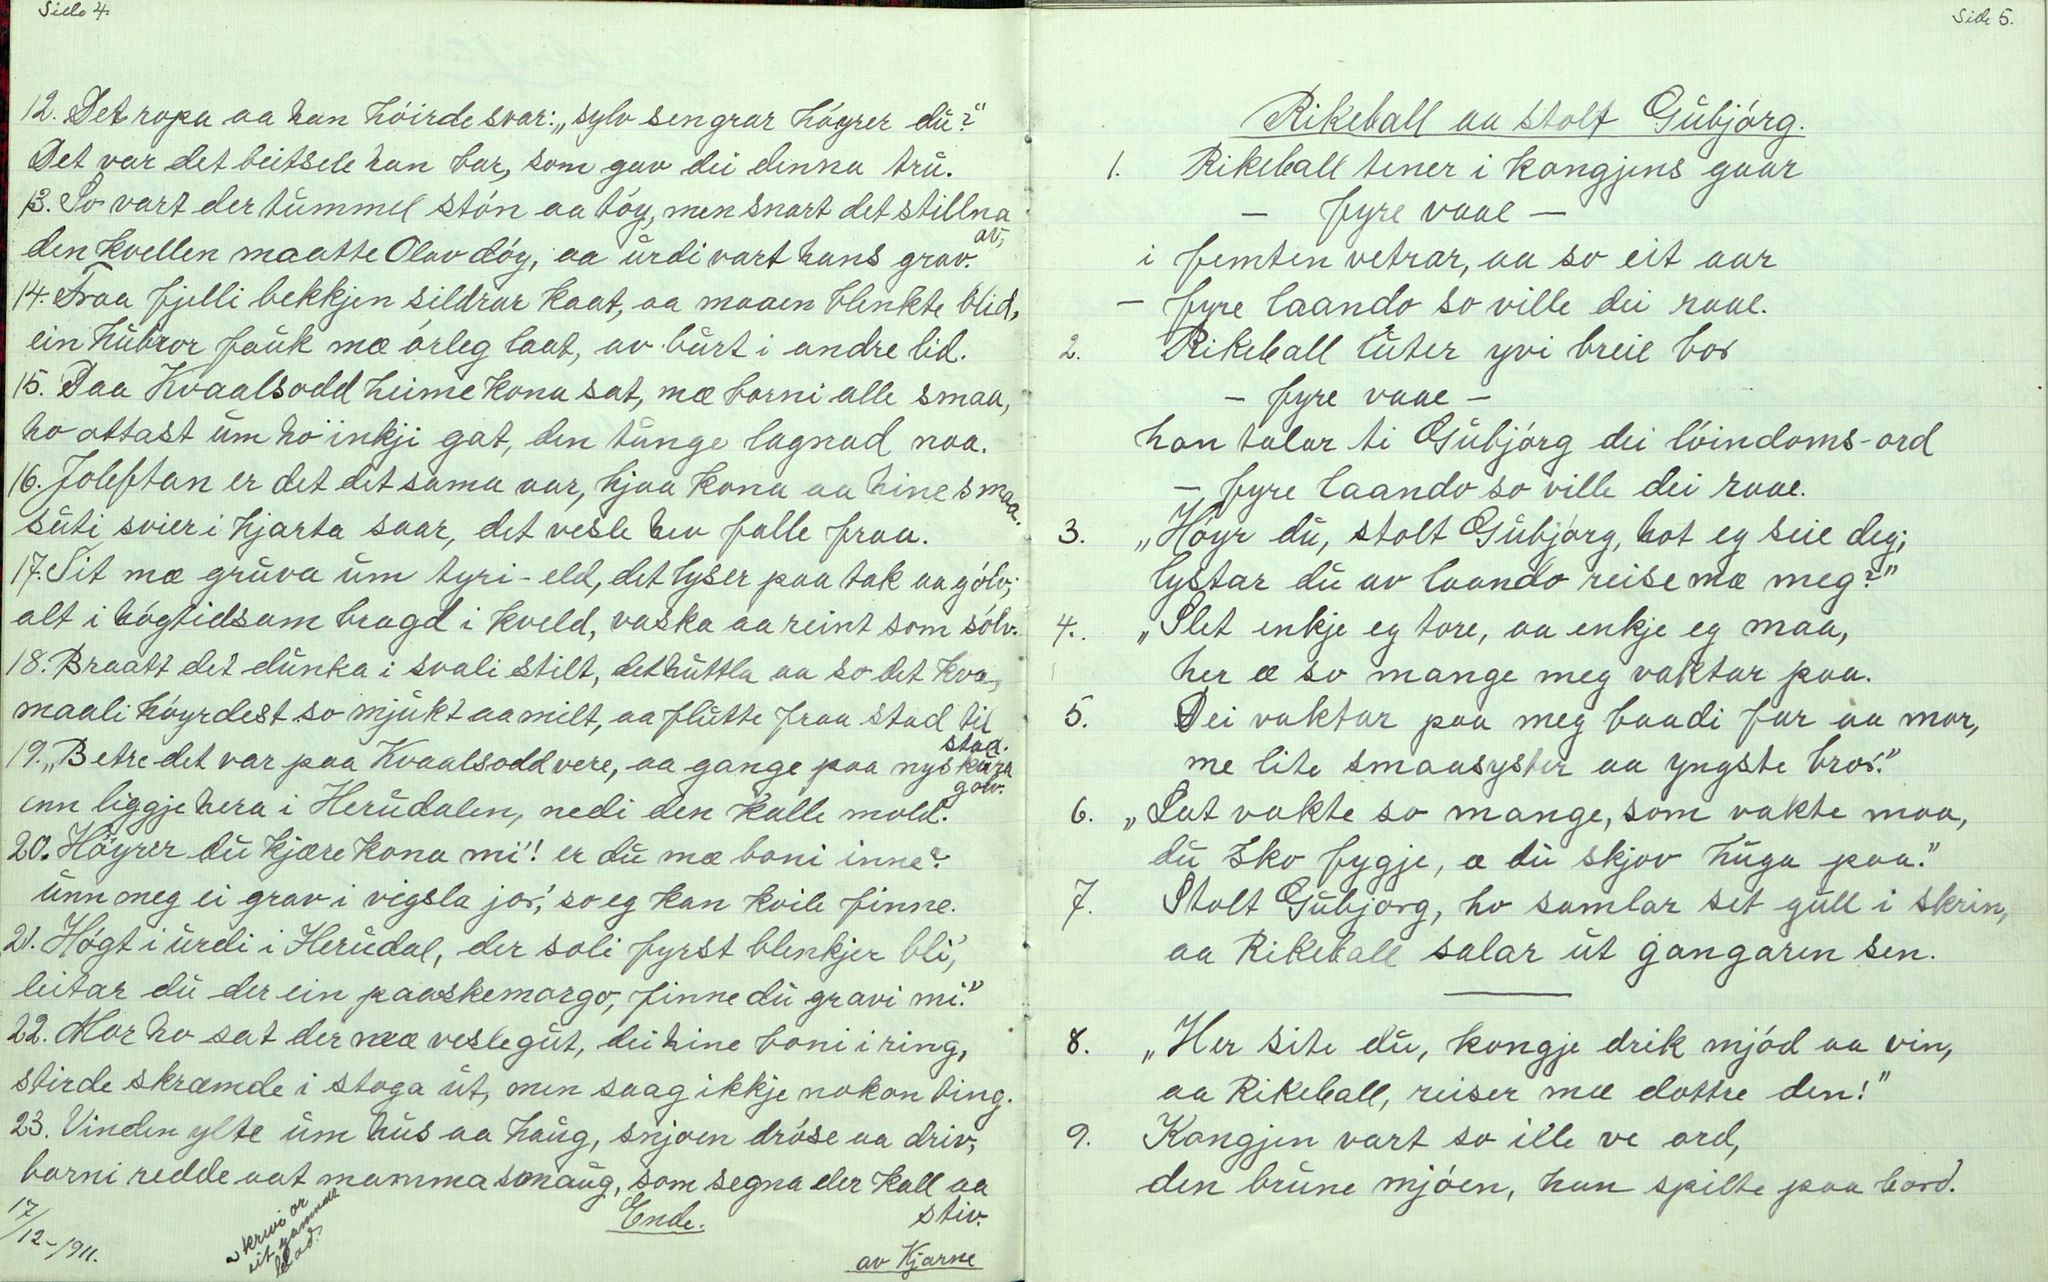 Side 4.
12. Det ropa aa han höirde svar: „sylv sengrar höyrer du?"
Det var det beitsele han bar, som gav dei denna tru.
13. So vart der tummel stön aa töy, men snart det stillna av,
den kvellen maatte Olav döy, aa urdi vart hans grav.
14. Fraa fjelli bekkjen sildrar kaat, aa maaen blenkte blid,
ein hubror fauk mæ örleg laat, av burt i andre lid.
15. Paa Kvaalsodd heime kona sat, mæ borni alle smaa,
ho ottast um ho inkji gat, den tunge lagnad naa.
16. Joleftan er det det sama aar, hjaa kona aa hine smaa.
suti svier i hjarta saar, det vesle hev falle fraa.
17. Sit mæ gruva um tyri-eld, det lyser paa tak aa gölv;
alt i högtidsam bragd i kveld, vaska aa reint som sölv.
18. Braatt det dunka i svali stilt, det huttla aa so det kva,
maali höyrdest so mjukt aa milt, aa flutte fraa stad til stad.
19. „Betre det var paa Kvaalsodd vere, aa gange paa nyskura golv.
enn liggje hera i Herudalen, nedi den kalle mold.
20. Höyrer du kjære kona mi! er du mæ boni inne?
unn meg ei grav i vigsla jor, so eg kan kvile finne.
21. Högt i urdi i Herudal, der soli fyrst blenkjer bli,
leitar du der ein paaskemorgo, finne du gravi mi."
22. Mor ho sat der mæ veslegut, dei hine boni i ring,
stirde skræmde i stoga ut, men saag ikkje nokon ting.
23. Vinden ylte um hus aa haug, snjoen dröse aa driv,
borni redde aat mamma smaug, som segna der kall aa stiv.
Ende.
17/12-1911.
skrivi or
eit gammalt
blad.
av Kjarne
Side 5.
Rikeball aa stolt Gubjörg.
1. Rikeball tener i kongjens gaar
– fyre vaae –
i femten vetrar, aa so eit aar
– fyre laando so ville dei raae.
2. Rikeball luter yvi breie bor
– fyre vaae –
han talar ti Gubjörg dei löindoms-ord
– fyre laando so ville dei raae.
3. „Höyr du, stolt Gubjörg, hot eg seie deg;
lystar du av laando reise mæ meg?"
4. „Slet enkje eg tore, aa enkje eg maa,
her æ so mange meg vaktar paa.
5. Dei vaktar paa meg baadi far aa mor,
me lite smaasyster aa yngste bror."
6. „Lat vakte so mange, som vakte maa,
du sko fygje, æ du skjov huga paa."
7. Stolt Gubjorg, ho samlar set gull i skrin,
aa Rikeball salar ut gangaren sen.
8. „Her site du, kongje drik mjöd aa vin,
aa Rikeball, reiser mæ dottre den!"
9. Kongjen vart so ille ve ord,
den brune mjöen, han spilte paa bord.